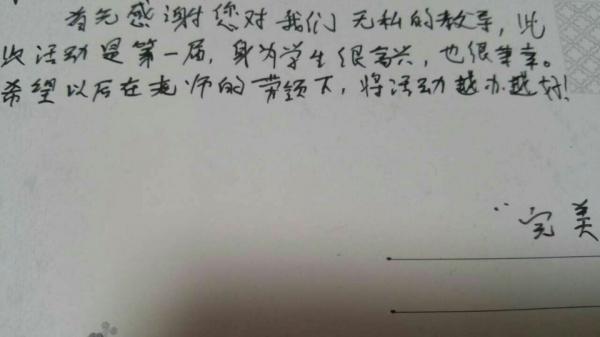 首先感谢您对我们无私的教导，此
次活动是第一届，身为学生很高兴，也很荣幸。
希望以后在老师的带领下，将活动越办越好！
“完美